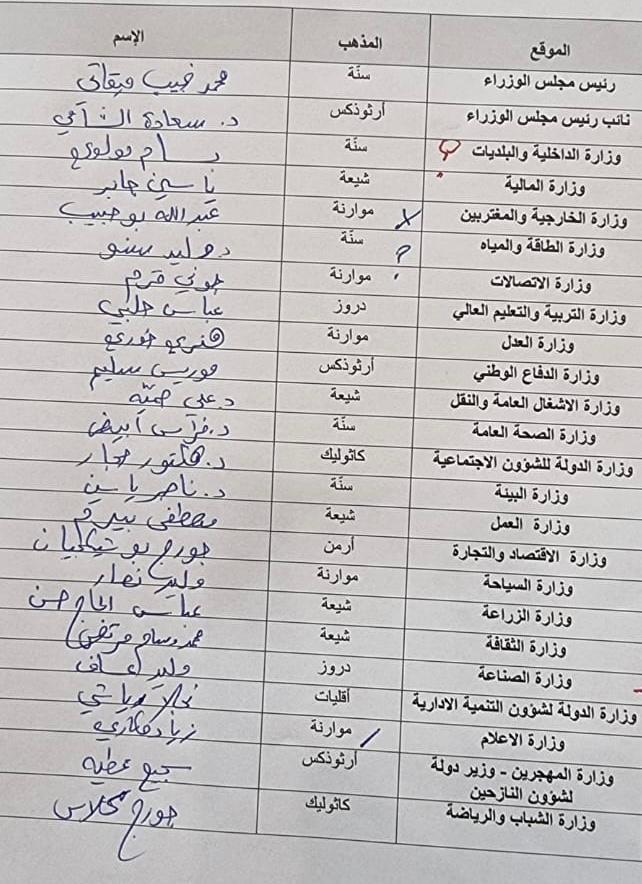 الموقع المذهب الإسم
رئيس مجلس الوزراء سنّة محمد نجيب ميقاتي
نائب رئيس مجلس الوزراء أرثوذكس د. سعادة الشامي
وزارة الداخلية والبلديات سنّة بسام مولوي
وزارة المالية شيعة ياسين جابر
وزارة الخارجية والمغتربين موارنة عبدالله بو حبيب
وزارة الطاقة والمياه سنّة د. وليد سنو
وزارة الاتصالات موارنة جوني قرم
وزارة التربية والتعليم العالي دروز عباس حلبي
وزارة العدل موارنة هنري خوري
وزارة الدفاع الوطني أرثوذكس موريس سليم
وزارة الاشغال العامة والنقل شيعة د. علي حميّه
وزارة الصحة العامة سنّة د. فراس أبيض
وزارة الدولة للشؤون الاجتماعية كاثوليك د. هكتور حجار
وزارة البيئة سنّة د. ناصر ياسين
وزارة العمل شيعة مصطفى بيرم
وزارة الاقتصاد والتجارة أرمن جورج بوشيكيان
وزارة السياحة موارنة وليد نصار
وزارة الزراعة شيعة عباس الحاج حسن
وزارة الثقافة شيعة محمد وسام مرتضى
وزارة الصناعة دروز وليد عساف
وزارة الدولة لشؤون التنمية الادارية أقليات نجلا رياشي
وزارة الاعلام موارنة زياد مكاري
وزارة المهجرين - وزير دولة أرثوذكس سجيع عطيه
لشؤون النازحين
وزارة الشباب والرياضة كاثوليك جورج كلاس